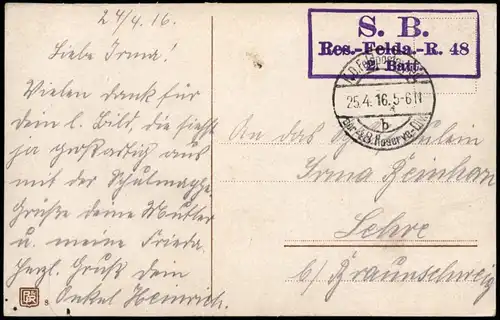 24/4. 16.
Liebe Irma!
Vielen dank für
dein l. Bild, die sieht
ja großartig aus
mit der Schulmappe.
Grüße deine Mutter
u. meine Frieda.
Herzl. Gruß dein
Onkel Heinrich.
S. B.
Res.-Felda.-R. 48
2. Batt.
K.D. Feldpost
25.4.16. 5-6 N
b
der 48. Reserve-Div.
An das Schulfräulein
Irma Reinhardt
Lehre
b/ Braunschweig
8